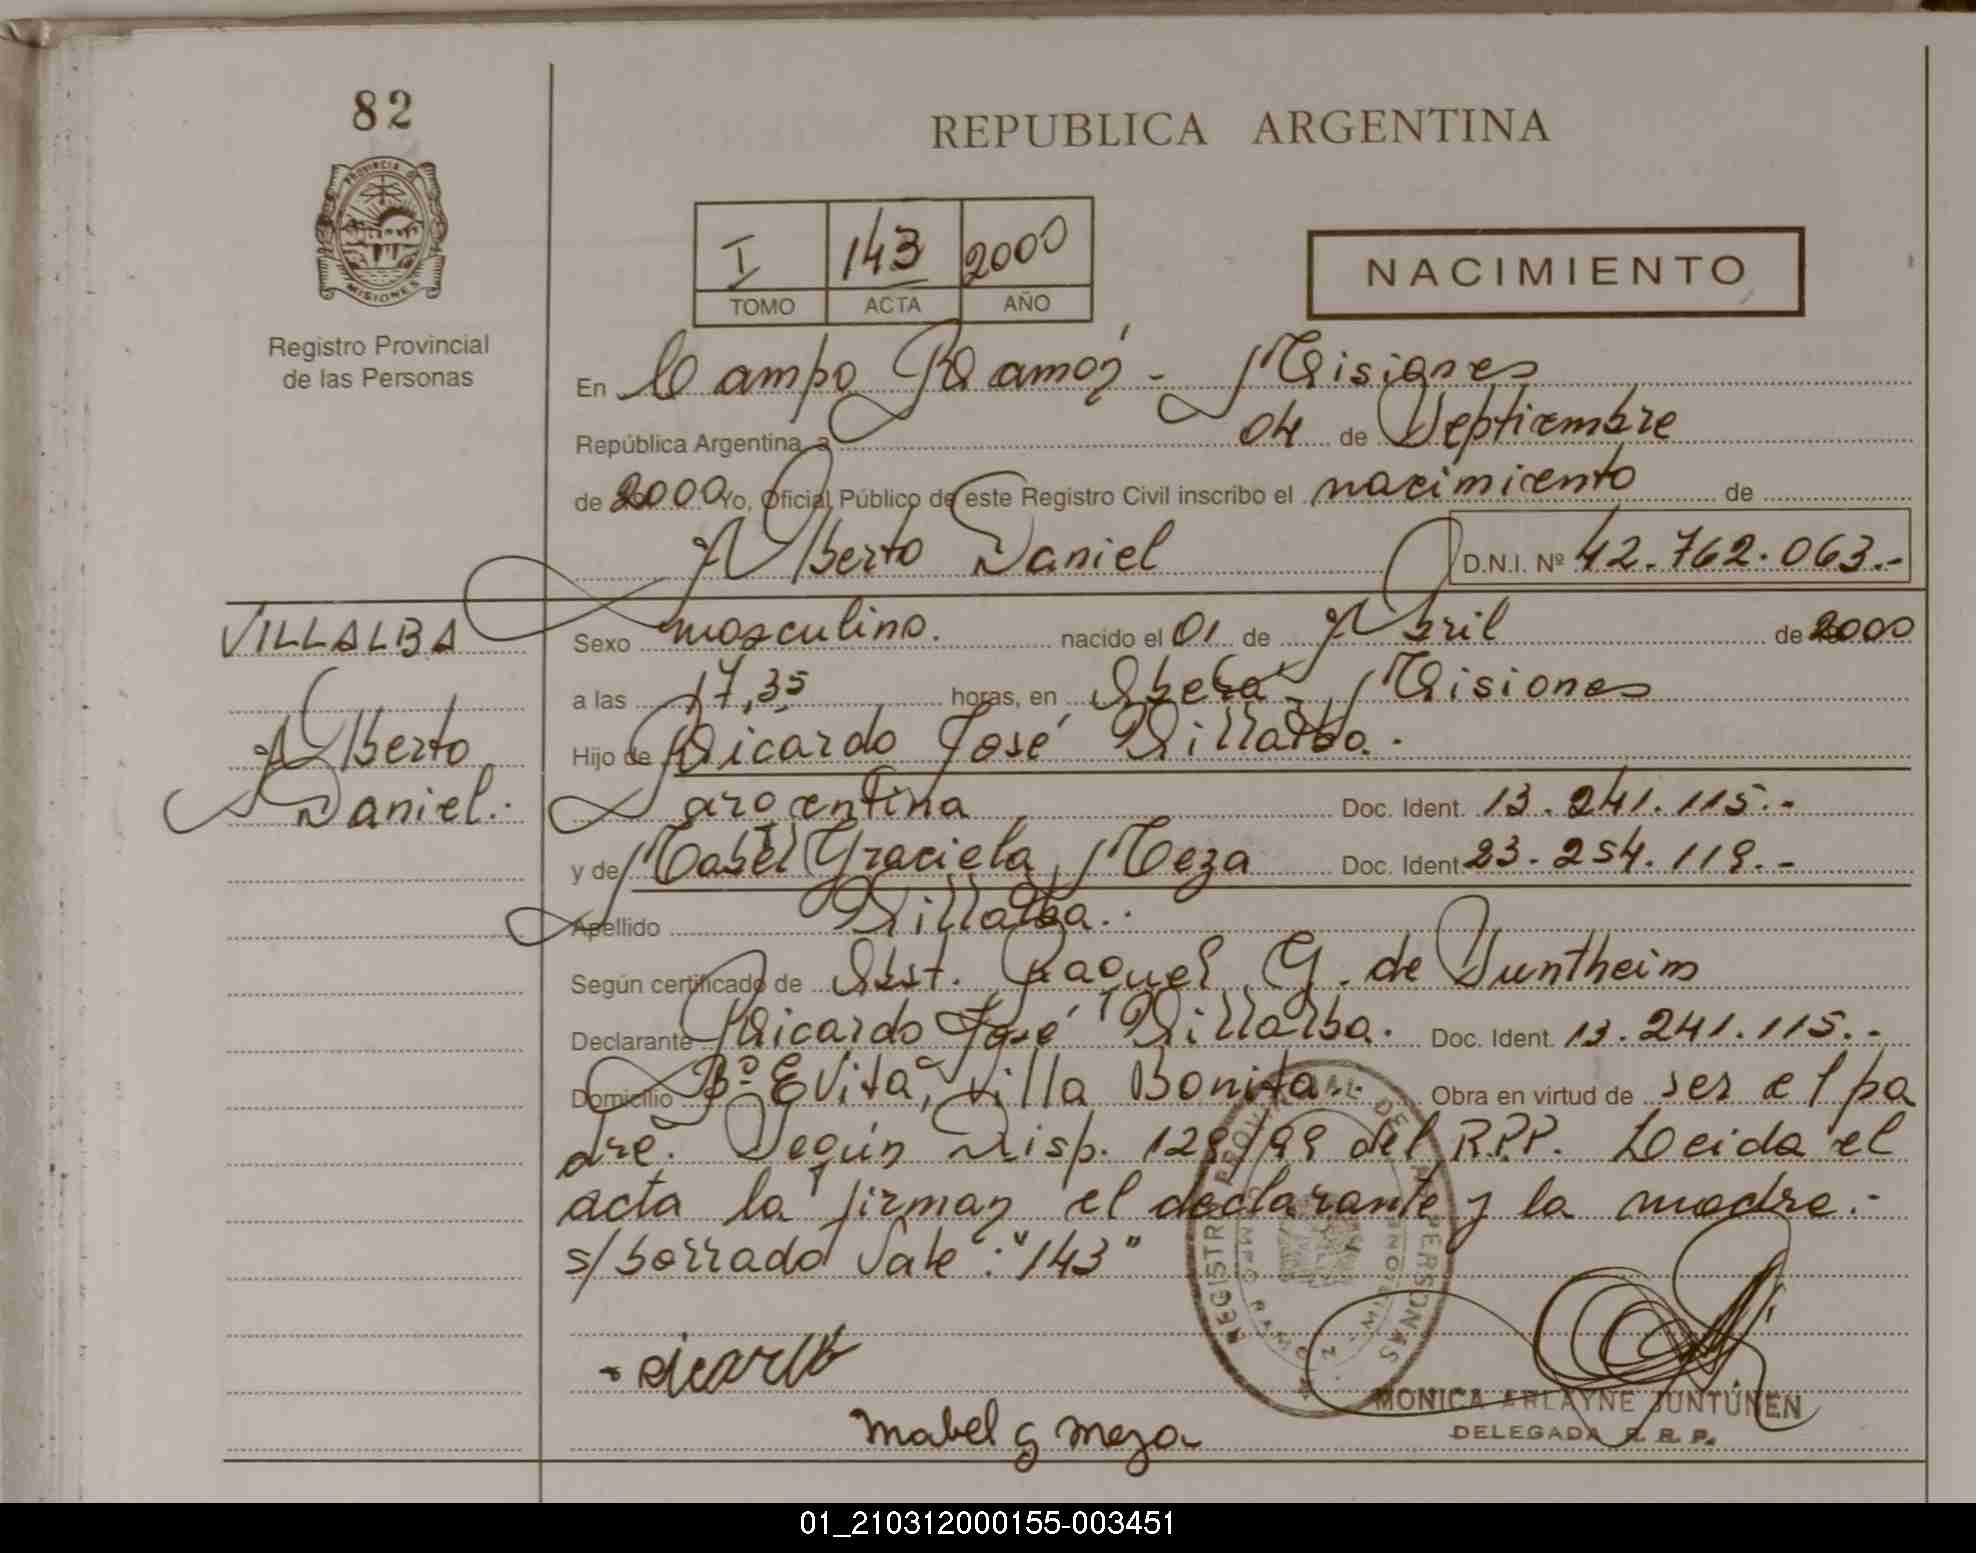 82
REPUBLICA ARGENTINA
PROVINCIA D
MISIONES
Registro Provincial
de las Personas
I 143 2000
TOMO ACTA AÑO
NACIMIENTO
En Campo Ramón - Misiones
República Argentina, a 04 de Septiembre
de 2000 Yo, Oficial Público de este Registro Civil inscribo el nacimiento de
Alberto Daniel D.N.I. Nº 42.762.063.-
VILLALBA
Alberto
Daniel.
Sexo masculino. nacido el 01 de Abril de 2000
a las 17,35 horas, en Oberá - Misiones
Hijo de Ricardo José Villalba.
argentina Doc. Ident. 13.241.115.-
y de Mabel Graciela Meza Doc. Ident. 23.254.119.-
Apellido Villalba.
Según certificado de Obst. Raquel G. de Suntheim
Declarante Ricardo José Villalba. Doc. Ident. 13.241.115.-
Domicilio Bº Evita, Villa Bonita. Obra en virtud de ser el pa
dre. Según Disp. 129/99 del R.P.P. Leida el
acta la firman el declarante y la madre.-
s/borrado Vale: "143"
REGISTRO PROVINCIAL DE LAS PERSONAS
Mabel G Meza
MONICA ARLAYNE JUNTUNEN
DELEGADA R.R.P.
01_210312000155-003451